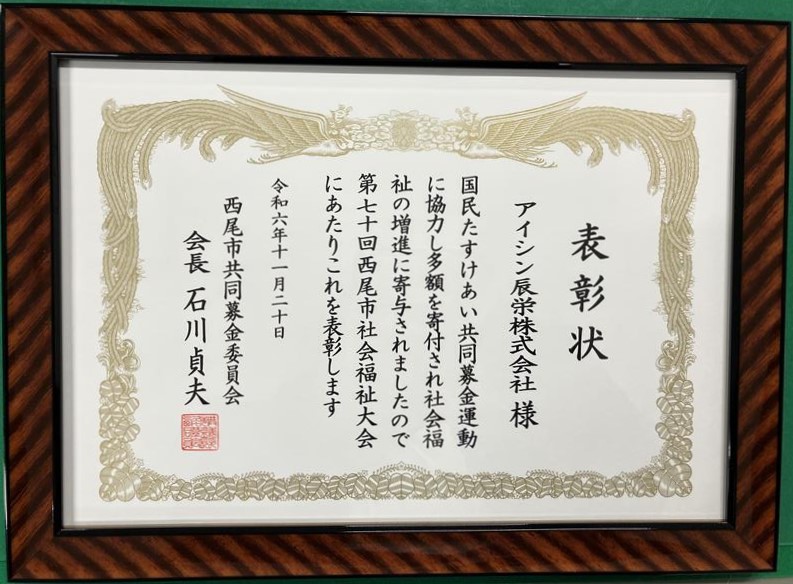 表彰状
アイシン辰栄株式会社 様
国民たすけあい共同募金運動
に協力し多額を寄付され社会福
祉の増進に寄与されましたので
第七十回西尾市社会福祉大会
にあたりこれを表彰します
令和六年十一月二十日
西尾市共同募金委員会
会長 石川貞夫